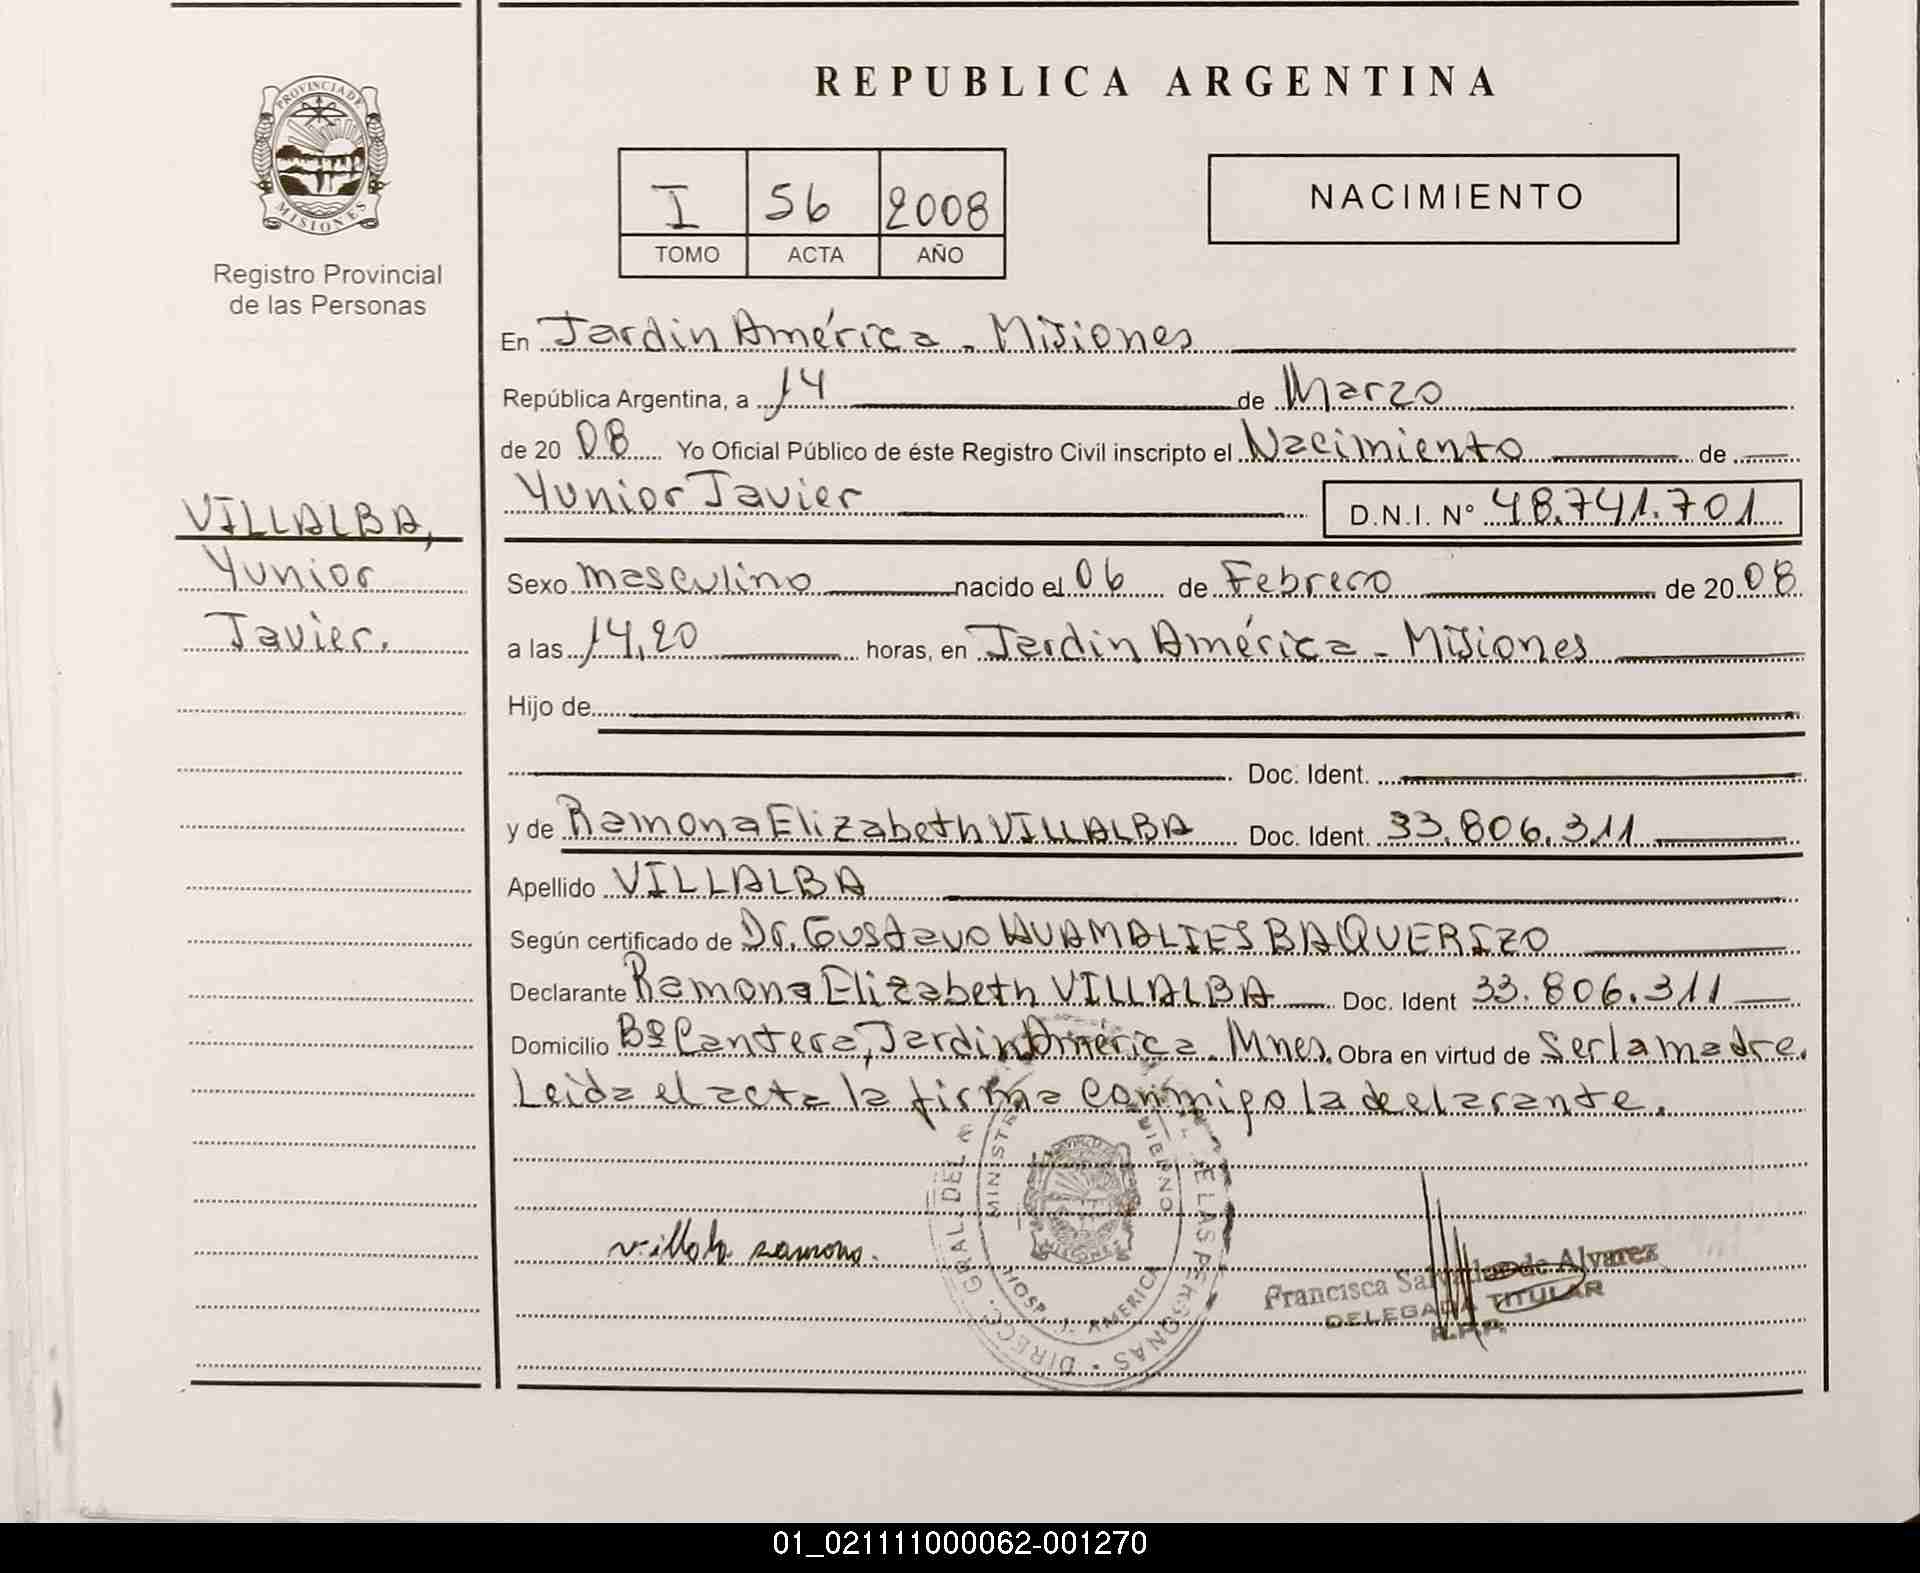 REPUBLICA ARGENTINA
PROVINCIA DE
MISIONES
Registro Provincial
de las Personas
I 56 2008
TOMO ACTA AÑO
NACIMIENTO
En Jardin América - Misiones
República Argentina, a 14 de Marzo
de 20 08 Yo Oficial Público de éste Registro Civil inscripto el Nacimiento de
Yunior Javier D.N.I. N° 48.741.701
VILLALBA,
Yunior
Javier.
Sexo masculino nacido el 06 de Febrero de 20 08
a las 14,20 horas, en Jardin América - Misiones
Hijo de
Doc. Ident.
y de Ramona Elizabeth VILLALBA Doc. Ident. 33.806.311
Apellido VILLALBA
Según certificado de Dr. Gustavo HUAMALIES BAQUERIZO
Declarante Ramona Elizabeth VILLALBA Doc. Ident 33.806.311
Domicilio Bº Cantera, Jardin América - Mnes. Obra en virtud de Ser la madre.
Leida el acta la firma conmigo la declarante.
DIRECC. GRAL. DEL DE LAS PERSONAS
HOSP. J. AMERICA
MISIONES
Francisca Salvador de Alvarez
DELEGADA TITULAR
R.P.P.
01_021111000062-001270